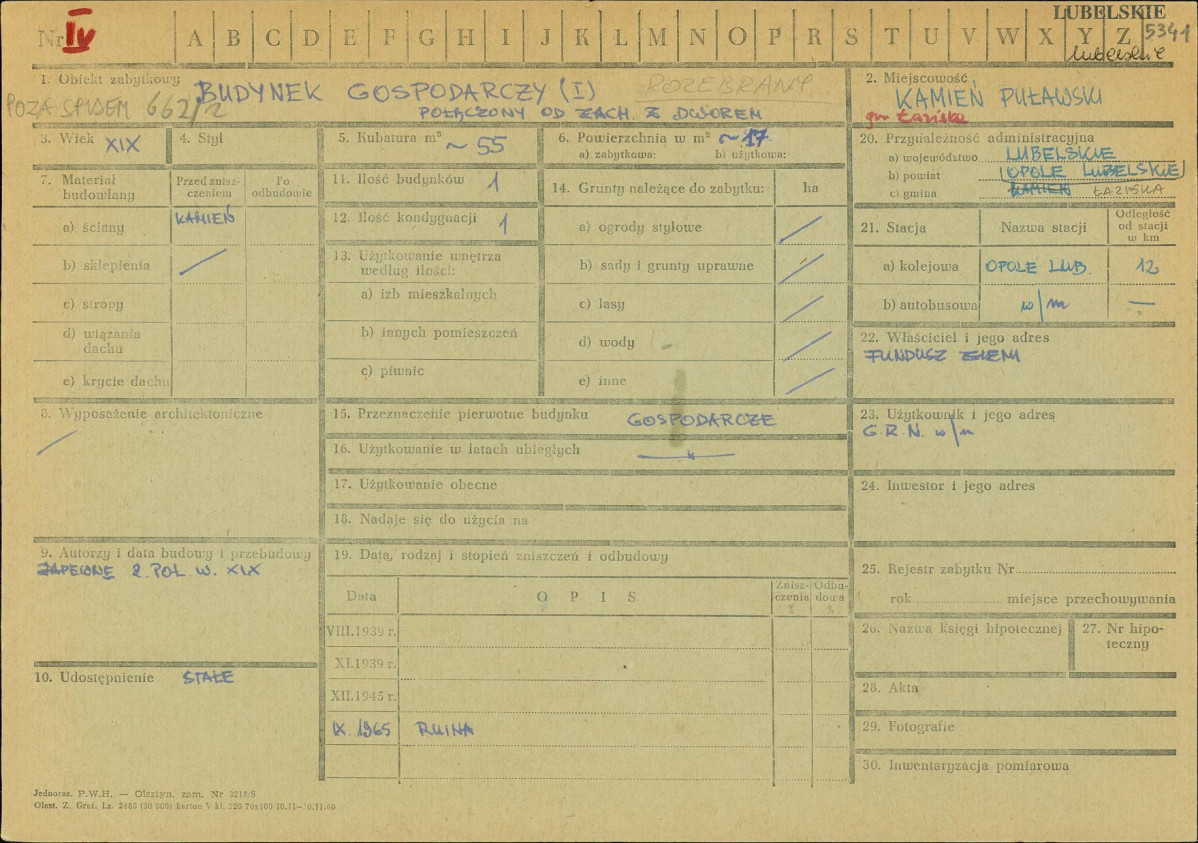 LUBELSKIE
Nr IV A B C D E F G H I J K L M N O P R S T U V W X Y Z 5341
lubelskie
1. Obiekt zabytkowy BUDYNEK GOSPODARCZY (I) ROZEBRANY
POZA SPISEM 662/2 POŁĄCZONY OD ZACH. Z DWOREM
2. Miejscowość
KAMIEŃ PUŁAWSKI
gm Łaziska
3. Wiek XIX
4. Styl
5. Kubatura m³ ~ 55
6. Powierzchnia w m² ~ 17
a) zabytkowa: b) użytkowa:
7. Materiał budowlany
Przed znisz-
czeniem
Po
odbudowie
a) ściany KAMIEŃ
b) sklepienia /
c) stropy
d) wiązania
dachu
e) krycie dachu
8. Wyposażenie architektoniczne
/
9. Autorzy i data budowy i przebudowy
ZAPEWNE 2. POŁ. W. XIX
10. Udostępnienie STAŁE
11. Ilość budynków 1
12. Ilość kondygnacji 1
13. Użytkowanie wnętrza
według ilości:
a) izb mieszkalnych
b) innych pomieszczeń
c) piwnic
14. Grunty należące do zabytku: ha
a) ogrody stylowe /
b) sady i grunty uprawne /
c) lasy /
d) wody /
e) inne /
15. Przeznaczenie pierwotne budynku GOSPODARCZE
16. Użytkowanie w latach ubiegłych
17. Użytkowanie obecne
18. Nadaje się do użycia na
19. Data, rodzaj i stopień zniszczeń i odbudowy
Data
O P I S
Znisz-
czenia
%
Odbu-
dowa
%
VIII.1939 r.
XI.1939 r.
XII.1945 r.
IX. 1965 RUINA
20. Przynależność administracyjna
a) województwo LUBELSKIE
b) powiat OPOLE LUBELSKIE
c) gmina KAMIEŃ ŁAZISKA
21. Stacja
Nazwa stacji
Odległość
od stacji
w km
a) kolejowa OPOLE LUB. 12
b) autobusowa w/m —
22. Właściciel i jego adres
FUNDUSZ ZIEMI
23. Użytkownik i jego adres
G.R.N. w/m
24. Inwestor i jego adres
25. Rejestr zabytku Nr
rok miejsce przechowywania
26. Nazwa księgi hipotecznej
27. Nr hipo-
teczny
28. Akta
29. Fotografie
30. Inwentaryzacja pomiarowa
Jednoraz. P.W.H. — Olsztyn, zam. Nr 3215/S
Olszt. Z. Graf. Lz. 2463 (50 000) karton V kl. 220 70x100 10.11—30.11.60